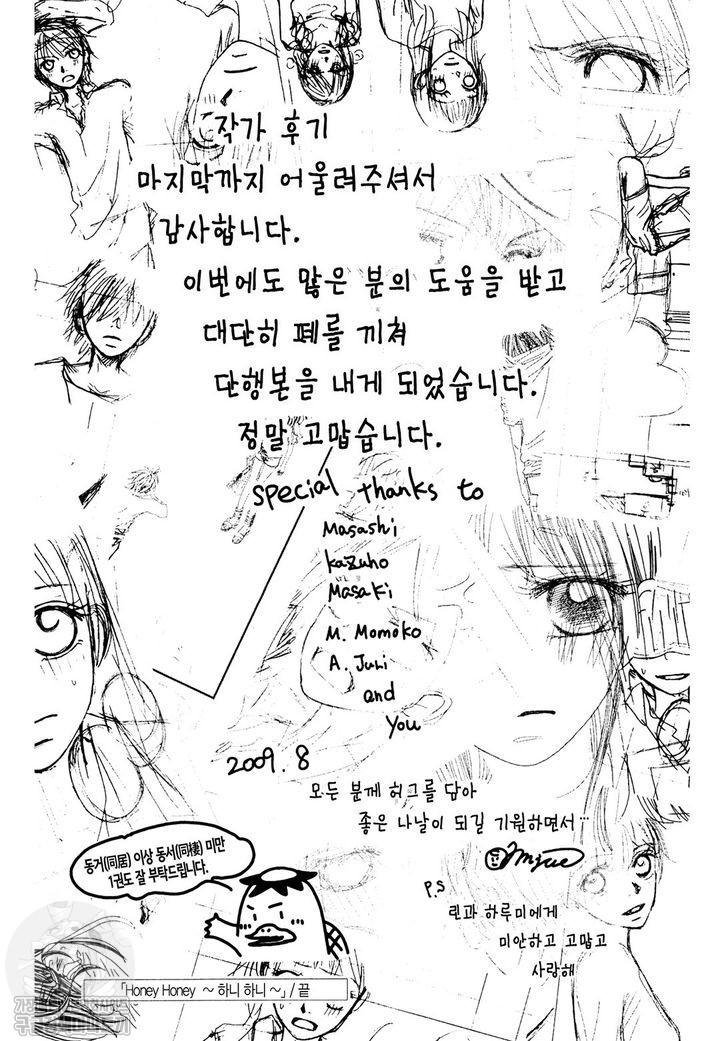 작가 후기
마지막까지 어울려주셔서
감사합니다.
이번에도 많은 분의 도움을 받고
대단히 폐를 끼쳐
단행본을 내게 되었습니다.
정말 고맙습니다.
special thanks to
Masashi
Kazuho
Masaki
M. Momoko
A. Juri
and
You
2009.8
모든 분께 허그를 담아
좋은 나날이 되길 기원하면서…
P.S
린과 하루미에게
미안하고 고맙고
사랑해
동거(同居) 이상 동서(同棲) 미만
1권도 잘 부탁드립니다.
「Honey Honey ～하니 하니～」/ 끝